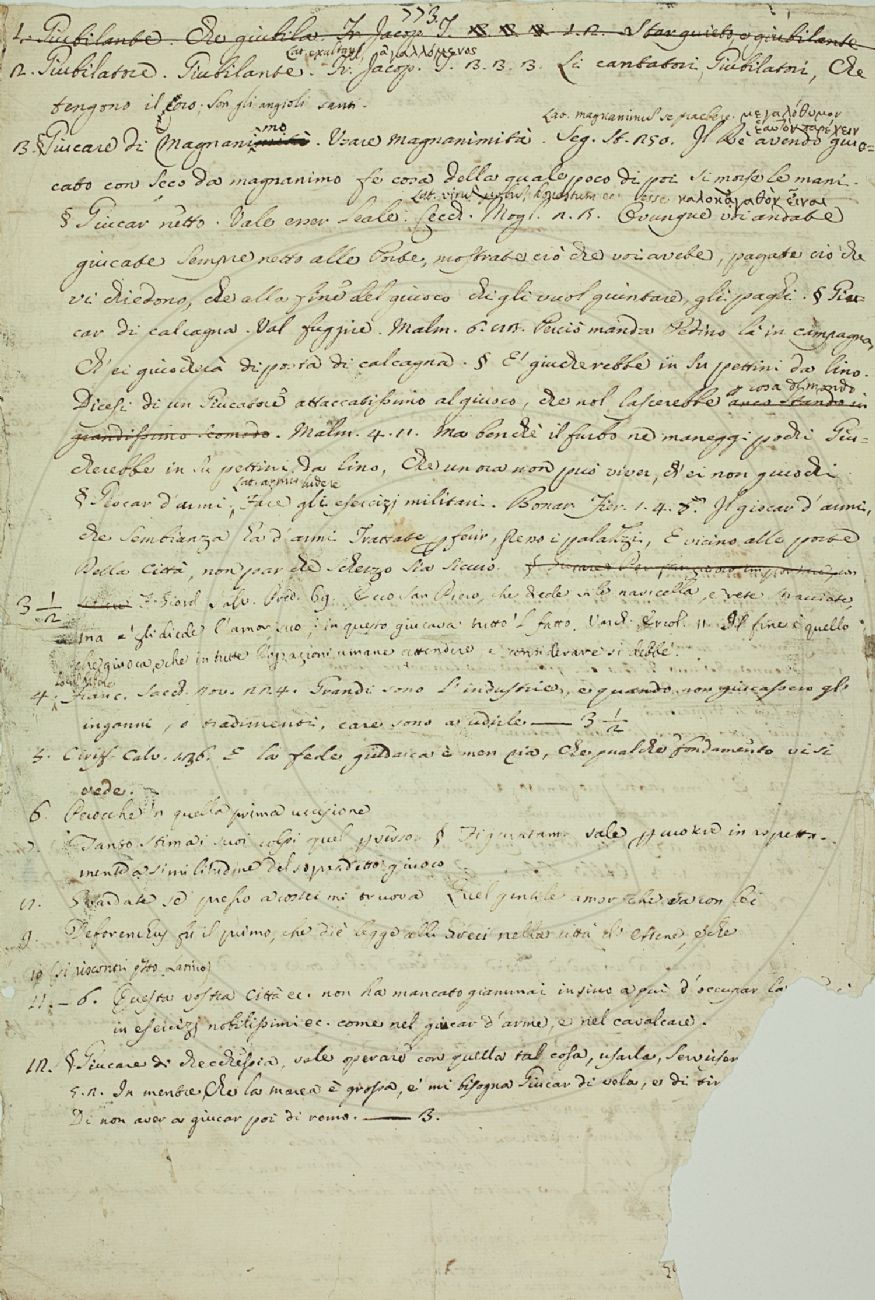 773.
1. Giubilante. Che giubila. Fr. Jacop. T. 1. 2. Star quieto, e giubilante
Lat. exultans, ἀγαλλόμενος
2. Giubilatore. Giubilante. Fr. Jacop. T. 3. 3. 3. Li cantatori, Giubilatori, Che
tengono il coro, Son gli angioli santi.
Lat. magnanimum se praebere. μεγαλόθυμον ἑαυτὸν παρέχειν
3. § Giucare di Magnanimo. Usare magnanimità. Seg. St. 250. Il Re avendo giuo-
cato con seco da magnanimo fe cosa della quale poco di poi si morse le mani.
esse καλοκἀγαθὸν εἶναι
§ Giucar netto. Vale esser leale. Cecch. Mogl. 2. 2. Ovunque voi andate
giucate sempre netto alle Porte, mostrate ciò che voi avete, pagate ciò che
vi chiedono, che alla fine del giuoco chi gli vuol quintare, gli paghi. § Giu-
car di calcagna. Val fuggire. Malm. 6. Perciò manda Pedino là in campagna,
Ch' ei giucherà di posta di calcagna. § E' giucherebbe in su pettini da lino.
o cosa del mondo
Dicesi di un Giucatore attaccatissimo al giuoco, che nol lascerebbe anco stando in
grandissimo scomodo. Malm. 4. 11. Ma benchè il furbo ne maneggi pochi Giu-
cherebbe in su pettini da lino, Che un'ora non può viver, ch'ei non giuochi.
ludere
§ Giocar d'armi, Fare gli esercizj militari. Bonar. Fier. 1. 4. Il giocar d'armi,
che sembianza ha d'armi Trattate per ferir, presso i palazzi, E vicino alle porte
Della Città, non par che scherzo sia sicuro.
3 1/2 Salv. 69. Ecco San Piero, che diede via le navicella, e rete stracciate,
ma e' gli diede l'amor suo; in questo giucava tutto 'l fatto. Varch. Ercol. 11. Il fine è quello
che giuoca, e che in tutte l'operazioni umane attendere, e considerare si debbe.
4. Franc. Sacch. nov. 224. Grandi sono l'industrie, e quando non giucassero gl'
inganni, o tradimenti, care sono a udirle — 3 1/2
5. Ciriff. Calv. E la fede giudaica è men ria, Che qualche fondamento vi si
vede.
6. Perocchè 'n quella prima uccisione
7. Tanto stima i suoi colpi quel § Figuratam. vale in rispetto.
similitudine del soprad­detto giuoco
Guardate se presso a costei mi truova Quel gentile amor, che va con lei
9. fu il primo, che diè legge alli Greci nella città d' Atena, e che
10 (si riscontri Latino)
11. — 6. Questa vostra Città ec. non ha mancato giammai insino a qui d'occupar la
in esercizj nobilissimi ec. come nel giucar d'arme, e nel cavalcare.
12. § Giucare di checchessia, vale operare con quella tal cosa, usarla, servirsen
5. 2. In mentre che la marea è grossa, e' mi bisogna Giucar di vela, e di tir
Di non aver a giucar poi di remo. — 3.